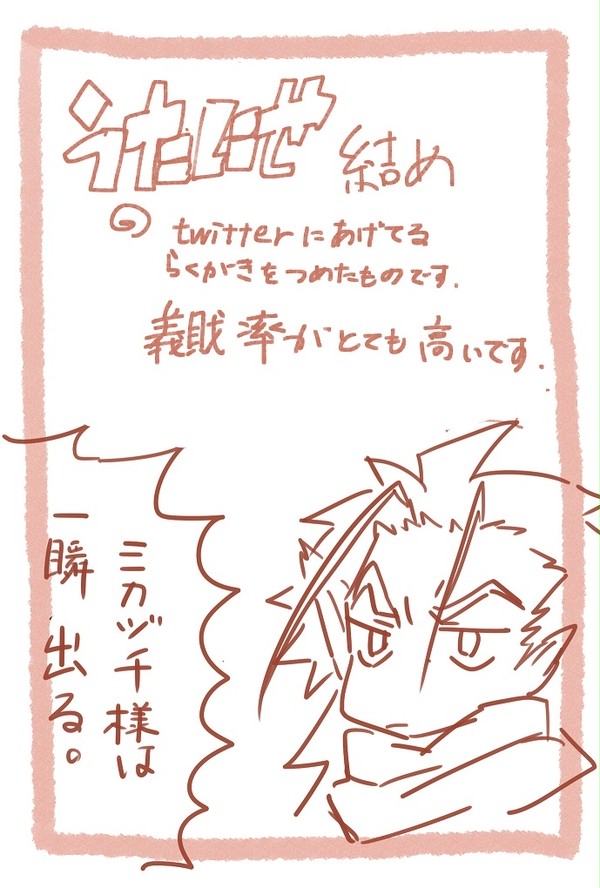 うたにせ 結め
の twitterにあげてる
らくがきをつめたものです.
義賊率がとても高いです.
ミカヅチ様は
一瞬出る。